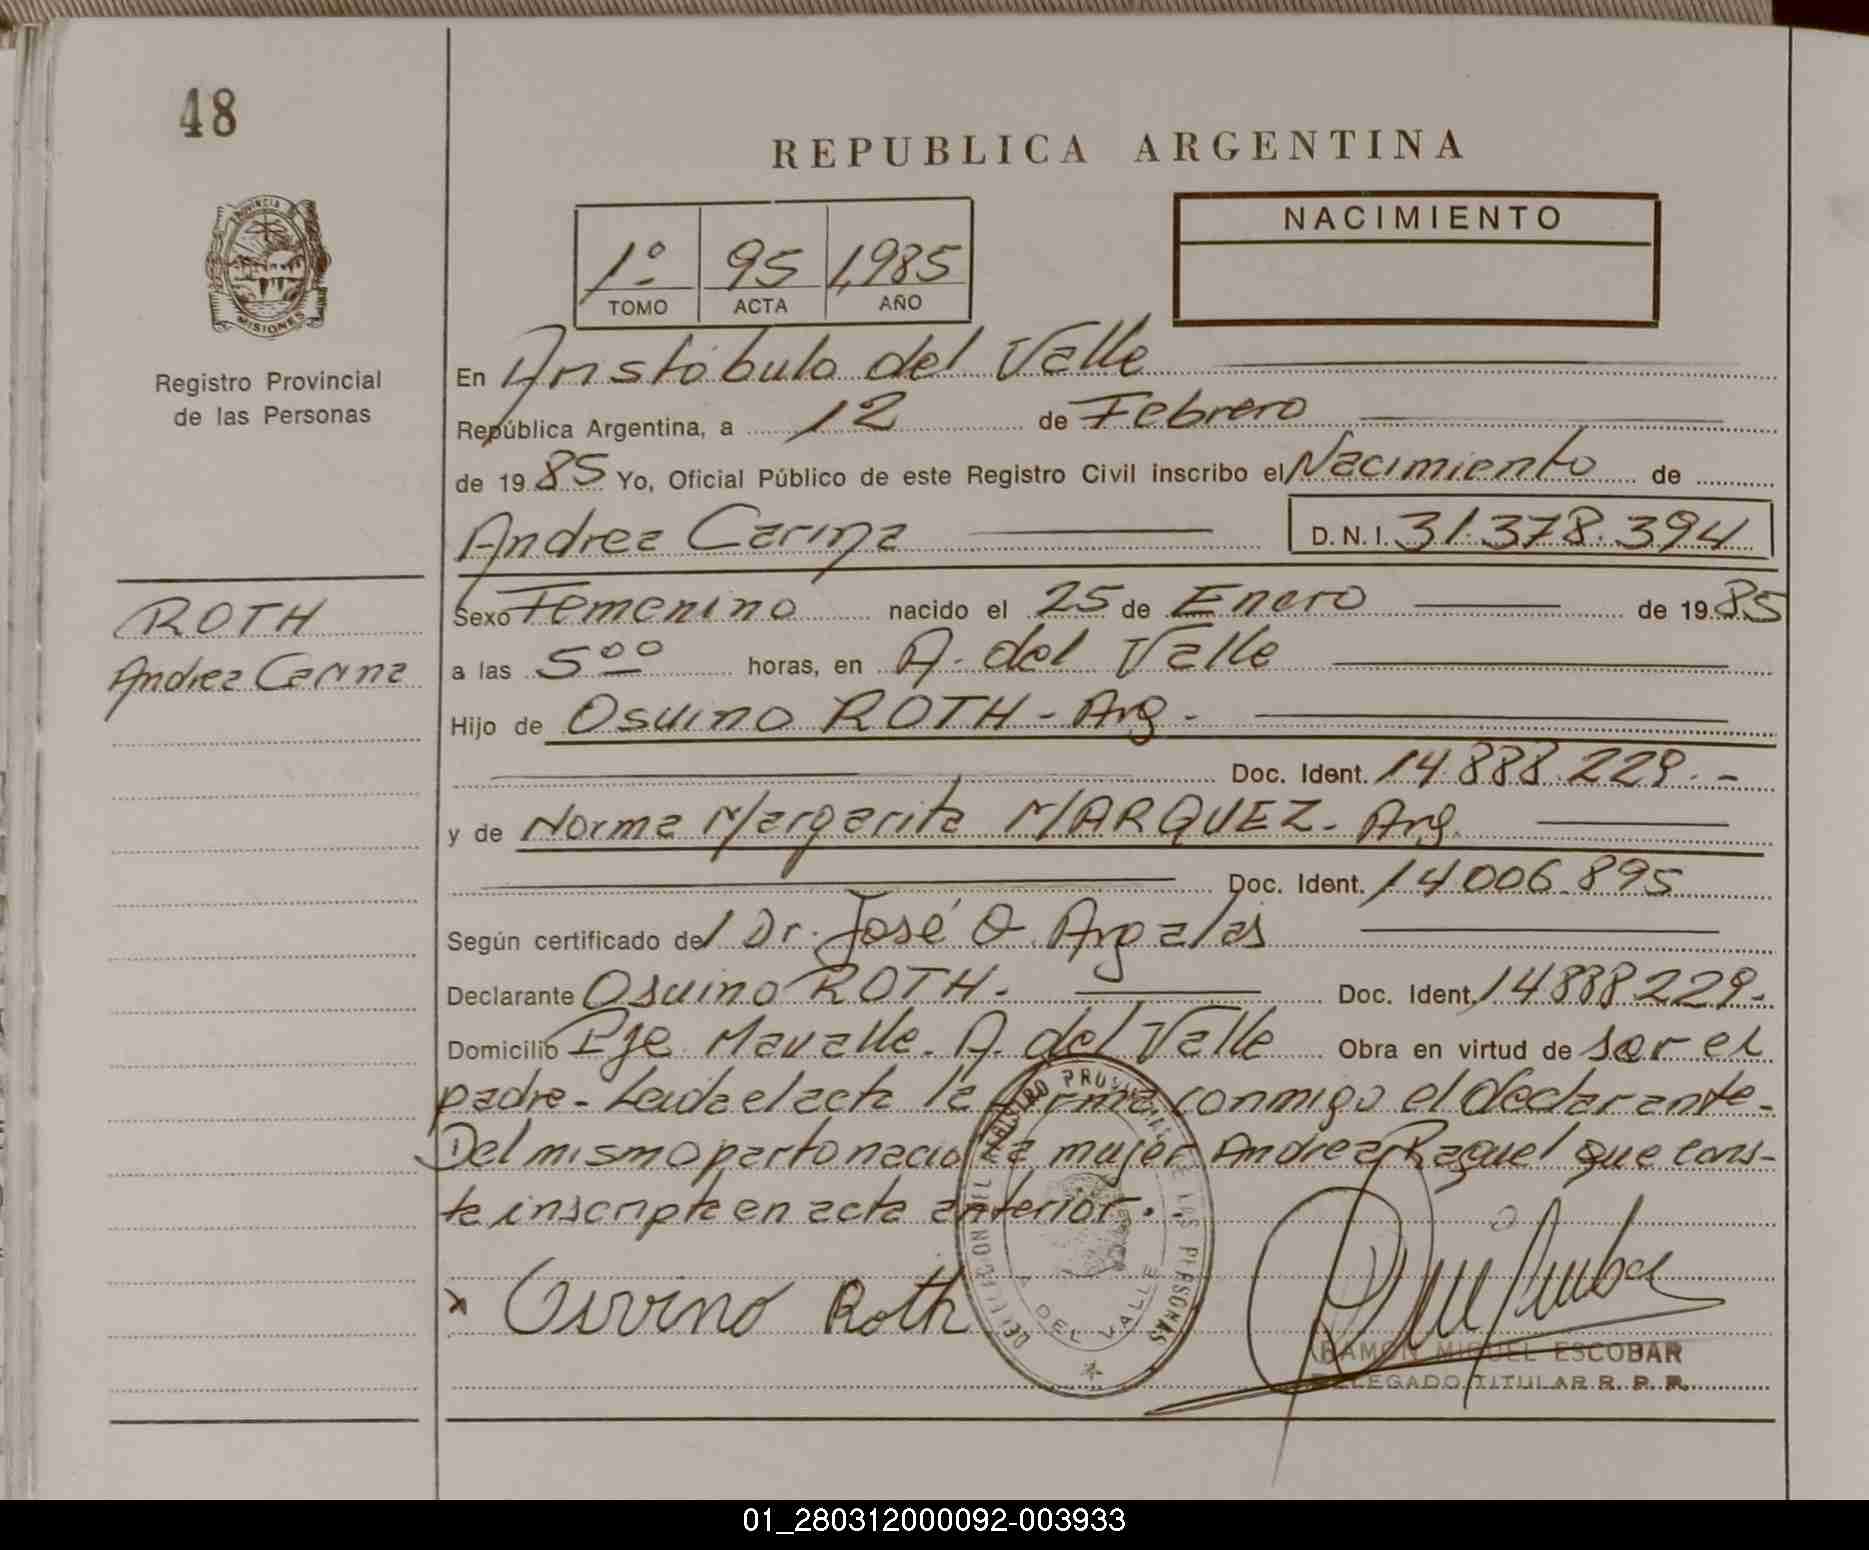 48
REPUBLICA ARGENTINA
PROVINCIA DE
MISIONES
Registro Provincial
de las Personas
1º 95 1,985
TOMO ACTA AÑO
NACIMIENTO
En Aristóbulo del Valle
República Argentina, a 12 de Febrero
de 19 85 Yo, Oficial Público de este Registro Civil inscribo el Nacimiento de
Andrea Carina D.N.I. 31.378.394
ROTH
Andrea Carina
Sexo Femenino nacido el 25 de Enero de 19 85
a las 5 00 horas, en A. del Valle
Hijo de Osuino ROTH - Arg -
Doc. Ident. 14.888.229.-
y de Norma Margarita MARQUEZ - Arg.
Doc. Ident. 14 006.895
Según certificado del Dr. José O. Argalas
Declarante Osuino ROTH - Doc. Ident. 14 888 229.-
Domicilio Pje Mavalle. A. del Valle Obra en virtud de ser el
padre - Leida el acta la firma conmigo el declarante -
Del mismo parto nacio la mujer Andrea Raquel que cons-
ta inscripta en acta anterior.
x Osvino Roth
DELEGACION DEL REGISTRO PROVINCIAL DE LAS PERSONAS
A. DEL VALLE
RAMON MIGUEL ESCOBAR
DELEGADO TITULAR R. P. P.
01_280312000092-003933